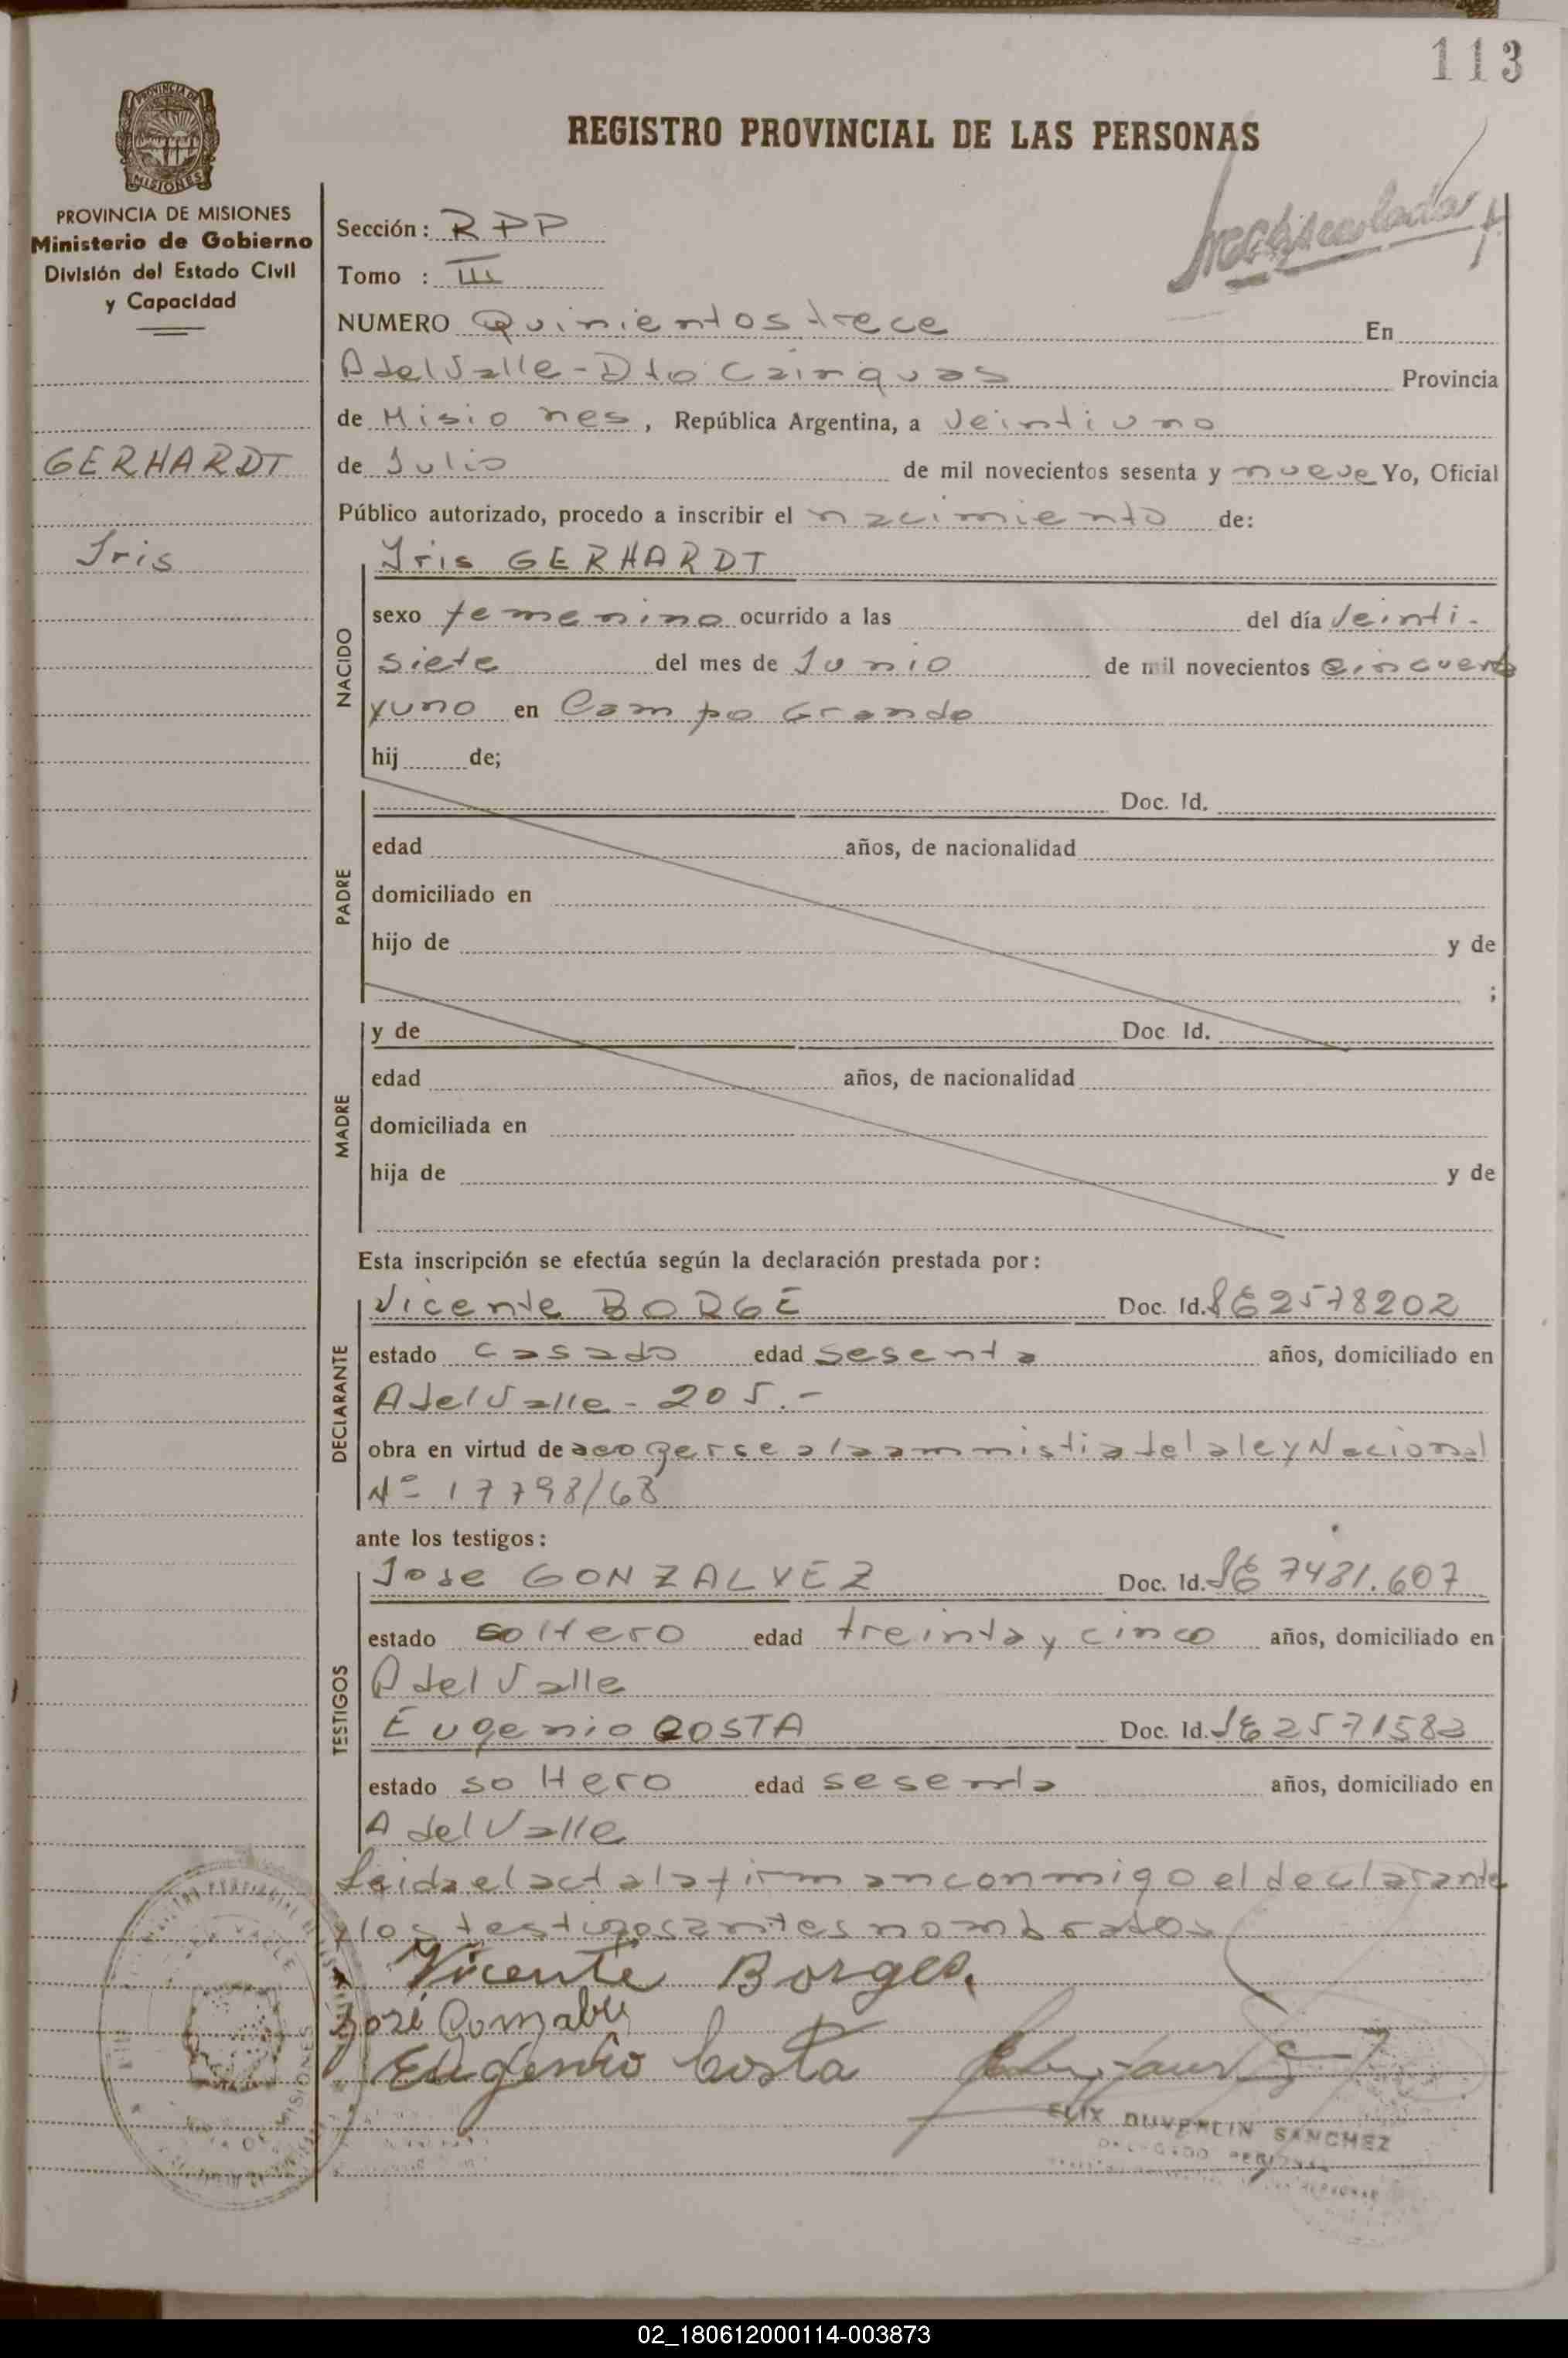 113
REGISTRO PROVINCIAL DE LAS PERSONAS
PROVINCIA DE MISIONES
Ministerio de Gobierno
División del Estado Civil
y Capacidad
GERHARDT
Iris
Sección: RPP
Tomo : III
NUMERO Quinientos trece En
A del Valle - Dto Cainguas Provincia
de Misiones, República Argentina, a Veintiuno
de Julio de mil novecientos sesenta y nueve Yo, Oficial
Público autorizado, procedo a inscribir el nacimiento de:
NACIDO
Iris GERHARDT
sexo femenino ocurrido a las del día Veinti-
siete del mes de Junio de mil novecientos cincuenta
y uno en Campo Grande
hij de;
PADRE
Doc. Id.
edad años, de nacionalidad
domiciliado en
hijo de y de
;
MADRE
y de Doc. Id.
edad años, de nacionalidad
domiciliada en
hija de y de
Esta inscripción se efectúa según la declaración prestada por:
DECLARANTE
Vicente BORGE Doc. Id. 2578202
estado casado edad sesenta años, domiciliado en
A del Valle - 205.-
obra en virtud de acogerse a la amnistia de la ley Nacional
Nº 17798/68
ante los testigos:
TESTIGOS
Jose GONZALVEZ Doc. Id. 7481.607
estado soltero edad treinta y cinco años, domiciliado en
A del Valle
Eugenio COSTA Doc. Id. 2571583
estado soltero edad sesenta años, domiciliado en
A del Valle
Leida el acta la firman conmigo el declarante
y los testigos antes nombrados
Vicente Borges.
José
Eugenio Costa
SANCHEZ
MISIONES
02_180612000114-003873